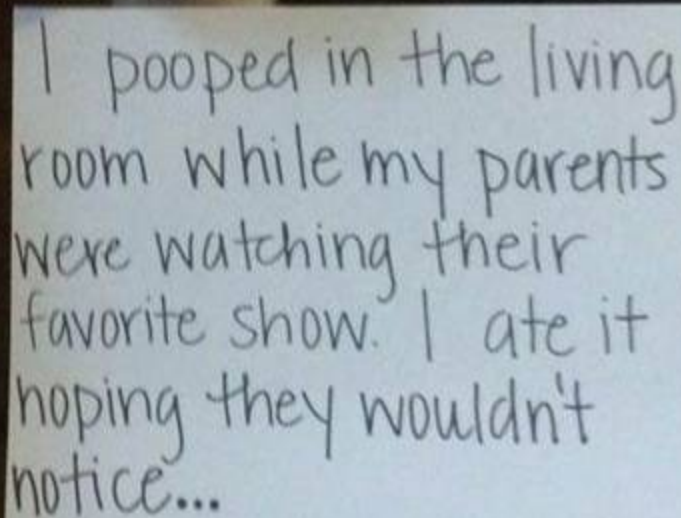 I pooped in the living
room while my parents
were watching their
favorite show. I ate it
hoping they wouldn't
notice...